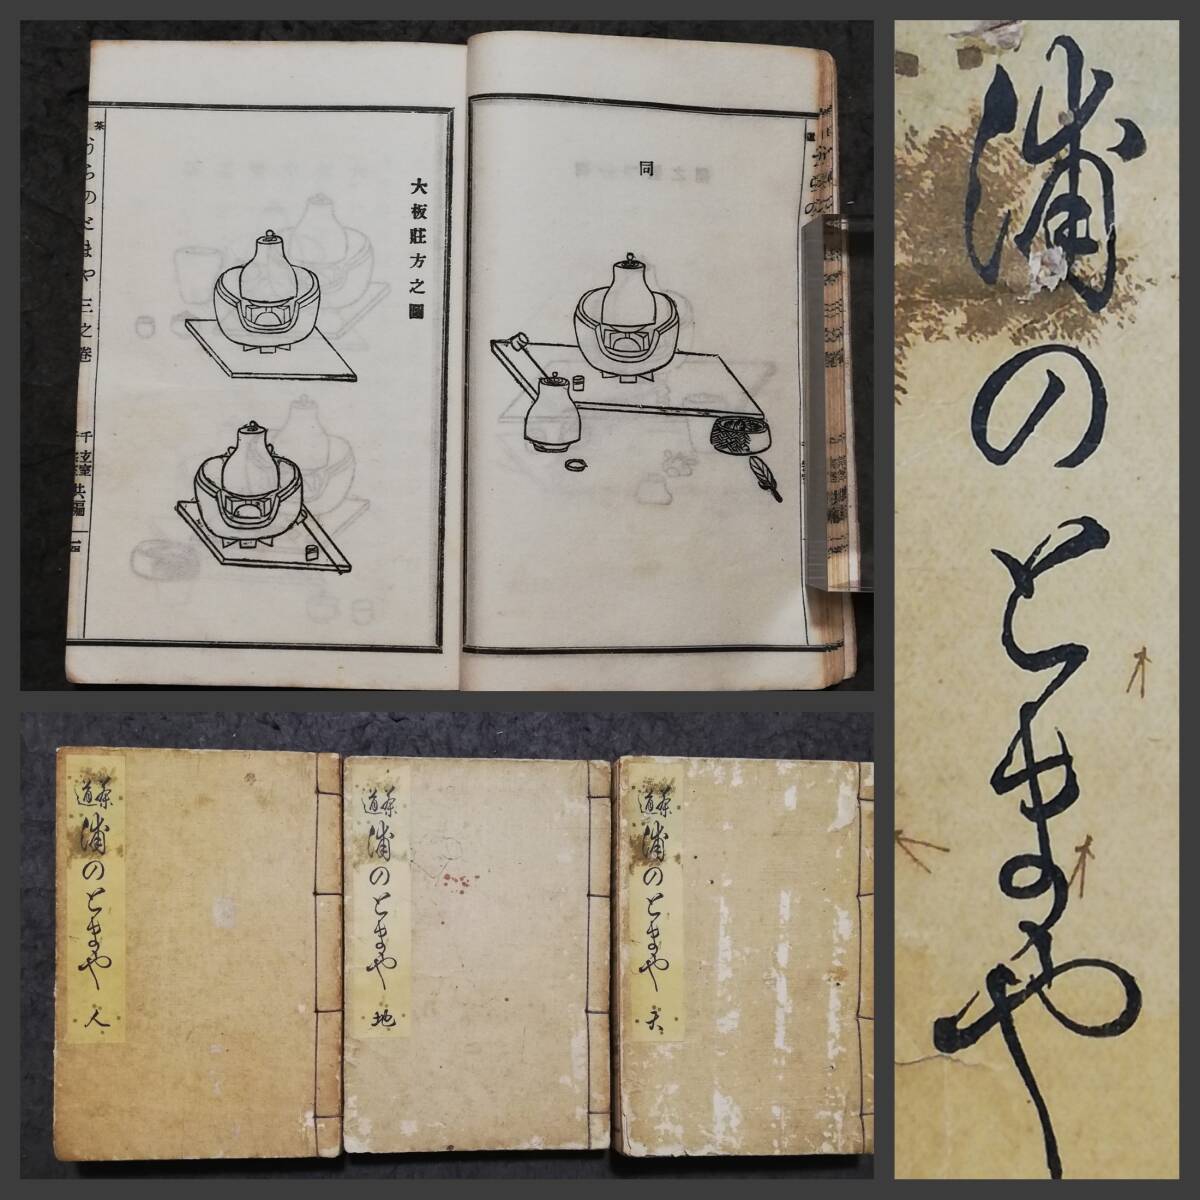 同
大板莊方之圖
茶
うらのとまや三之巻
千玄室
共編
十四
浦のとまや
茶道
浦のとまや
人
茶道
浦のとまや
地
茶道
浦のとまや
天